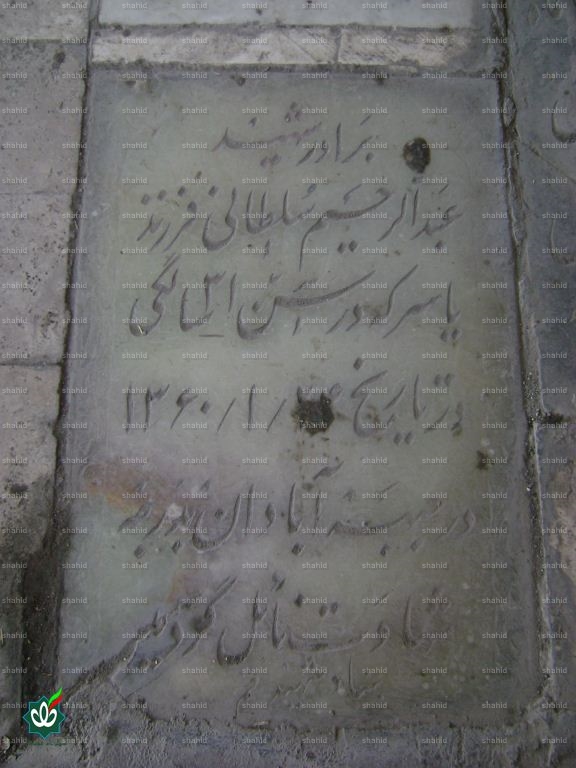 برادر شهید
عبدالرحیم سلطانی فرزند
یاسر که در سن ۳۱ سالگی
در تاریخ ۱۳۶۰/۱/
در جبهه آبادان بدرجه
شهادت نائل گردید
shahid